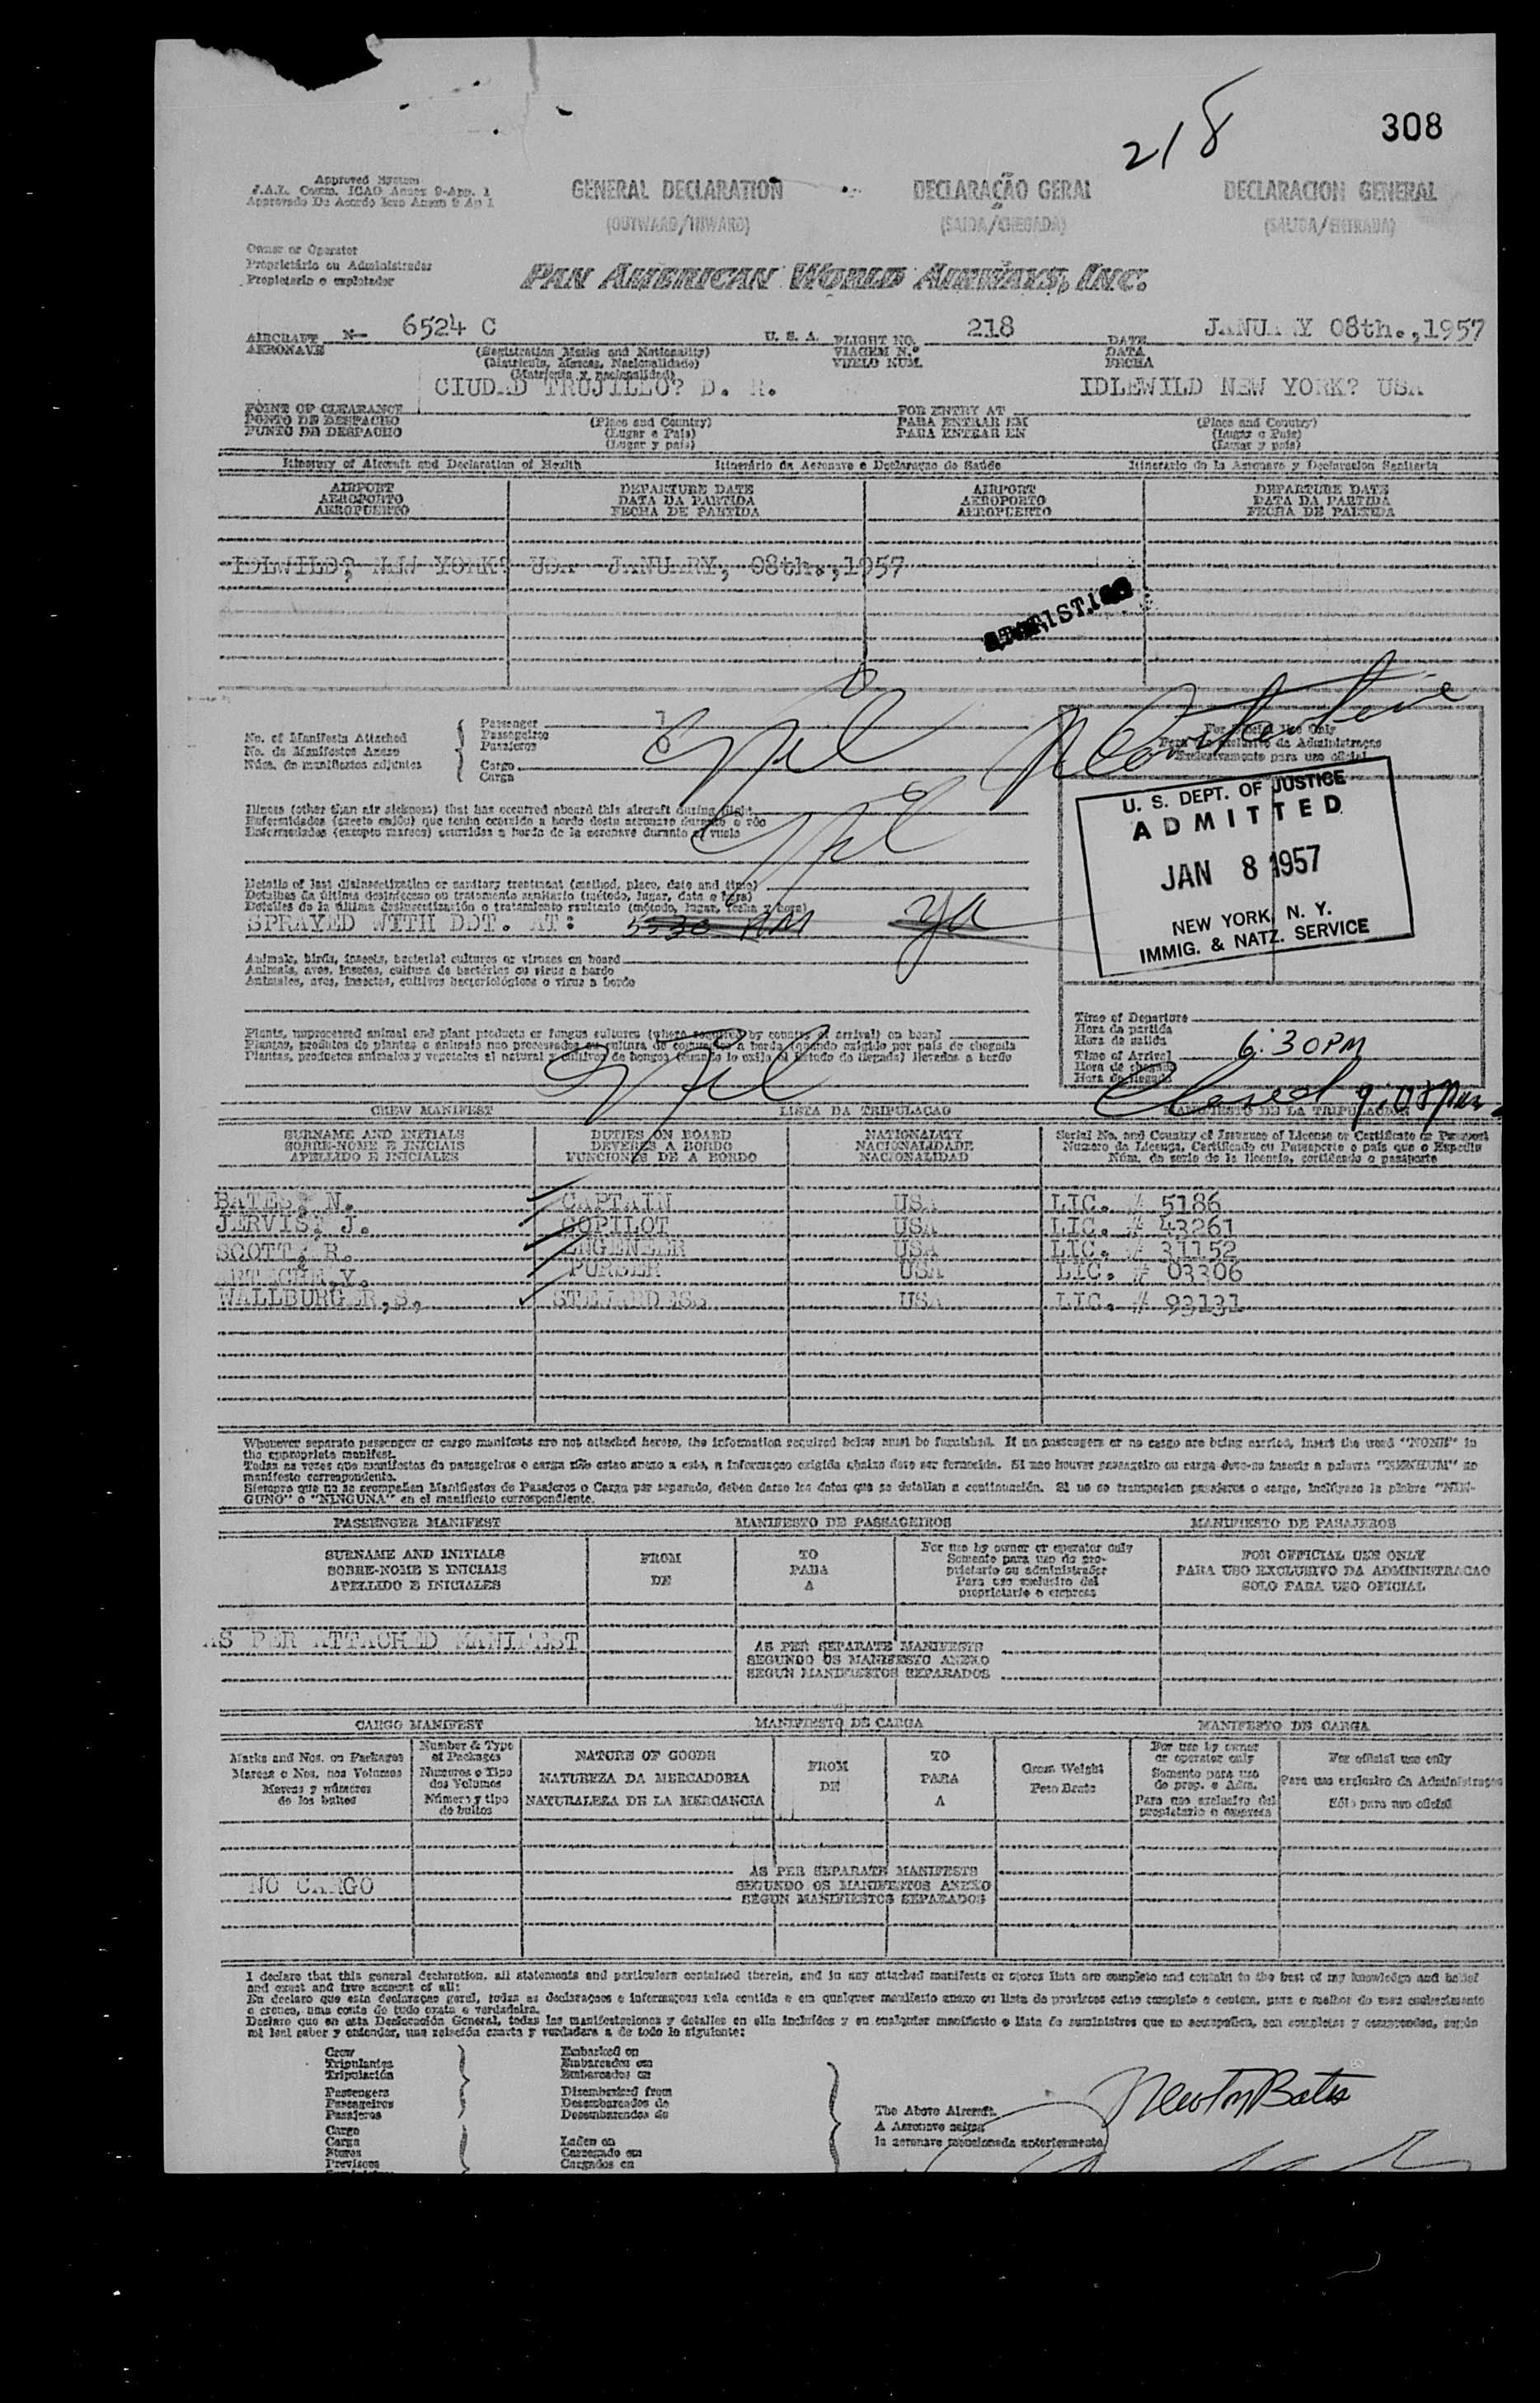 308
218
Approved System
J.A.L. Comm. ICAO Annex 9-App. 1
Approvado De Acordo Icao Anexo 9 Ap 1
GENERAL DECLARATION DECLARAÇÃO GERAL DECLARACION GENERAL
(OUTWARD/INWARD) (SAIDA/CHEGADA) (SALIDA/ENTRADA)
Owner or Operator
Proprietário ou Administrador
Propietario o explotador
PAN AMERICAN WORLD AIRWAYS, INC.
AIRCRAFT N- 6524 C U. S. A. FLIGHT NO. 218 DATE JANUARY 08th.,1957
AERONAVE (Registration Marks and Nationality) VIAGEM N.º DATA
(Matricula, Marcas, Nacionalidade) VUELO NUM. FECHA
(Matricula y nacionalidad)
CIUDAD TRUJILLO? D. R. IDLEWILD NEW YORK? USA
POINT OF CLEARANCE FOR ENTRY AT
PONTO DE DESPACHO (Place and Country) PARA ENTRAR EM (Place and Country)
PUNTO DE DESPACHO (Lugar e País) PARA ENTRAR EN (Lugar e País)
(Lugar y país) (Lugar y país)
Itinerary of Aircraft and Declaration of Health Itinerário da Aeronave e Declaraçao de Saúde Itinerario de la Aeronave y Declaracion Sanitaria
AIRPORT DEPARTURE DATE AIRPORT DEPARTURE DATE
AEROPORTO DATA DA PARTIDA AEROPORTO DATA DA PARTIDA
AEROPUERTO FECHA DE PARTIDA AEROPUERTO FECHA DE PARTIDA
IDLWILD? NEW YORK? USA JANUARY, 08th.,1957
No. of Manifests Attached
No. de Manifestos Anexo
Núm. de manifiestos adjuntos
Passenger 1
Passageiros
Pasajeros
Cargo 0
Carga
Nil
For Official Use Only
Para uso exclusivo da Administraçao
Exclusivamente para uso oficial
U. S. DEPT. OF JUSTICE
ADMITTED
JAN 8 1957
NEW YORK, N. Y.
IMMIG. & NATZ. SERVICE
Illness (other than air sickness) that has occurred aboard this aircraft during flight
Enfermidades (exceto enjôo) que tenha ocorrido a bordo desta aeronave durante o vôo
Enfermedades (excepto mareos) ocurridas a bordo de la aeronave durante el vuelo
Nil
Details of last disinsectization or sanitary treatment (method, place, date and time)
Detalhes da última desinfeccao ou tratamento sanitario (método, lugar, data e hora)
Detalles de la última desinsectización o tratamiento sanitario (método, lugar, fecha y hora)
SPRAYED WITH DDT. AT: 5530 PM
Animals, birds, insects, bacterial cultures or viruses on board
Animais, aves, insetos, cultura de bactérias ou virus a bordo
Animales, aves, insectos, cultivos bacteriológicos o virus a bordo
Plants, unprocessed animal and plant products or fungus cultures (where required by country of arrival) on board
Plantas, produtos de plantas o animais nao processados ou cultura de cogumelos a bordo (quando exigido por país de chegada
Plantas, productos animales y vegetales al natural y cultivos de hongos (cuando lo exija el Estado de llegada) llevados a bordo
Nil
Time of Departure
Hora da partida
Hora de salida
Time of Arrival 6:30PM
Hora de chegada
Hora de llegada
Closed 9:05pm.
CREW MANIFEST LISTA DA TRIPULAÇAO MANIFIESTO DE LA TRIPULACION
SURNAME AND INITIALS DUTIES ON BOARD NATIONALITY Serial No. and Country of Issuance of License or Certificate or Passport
SOBRE-NOME E INICIAIS DEVERES A BORDO NACIONALIDADE Numero da Licença, Certificado ou Passaporte o país que o Expediu
APELLIDO E INICIALES FUNCIONES DE A BORDO NACIONALIDAD Núm. de serie de la licencia, certificado o pasaporte
BATES, N. CAPTAIN USA LIC. # 5186
JERVIS, J. COPILOT USA LIC. # 43261
SCOTT, R. ENGENEER USA LIC. # 31152
V. PURSER USA LIC. # 03306
WALLBURGER,S, STEWARDESS USA LIC. # 93131
Whenever separate passenger or cargo manifests are not attached hereto, the information required below must be furnished. If no passengers or no cargo are being carried, insert the word "NONE" in
the appropriate manifest.
Todas as vezes que manifestos de passageiros o carga não estao anexo a este, a informaçao exigida abaixo deve ser fornecida. Si nao houver passageiro ou carga deve-se inserir a palavra "NENHUM" no
manifesto correspondente.
Siempre que no se acompañen Manifiestos de Pasajeros o Carga por separado, deben darse los datos que se detallan a continuación. Si no se transporten pasajeros o cargo, inclúyase la plabra "NIN-
GUNO" o "NINGUNA" en el manifiesto correspondiente.
PASSENGER MANIFEST MANIFESTO DE PASSAGEIROS MANIFIESTO DE PASAJEROS
SURNAME AND INITIALS FROM TO For use by owner or operator only FOR OFFICIAL USE ONLY
SOBRE-NOME E INICIAIS DE PARA Somente para uso do pro- PARA USO EXCLUSIVO DA ADMINISTRACAO
APELLIDO E INICIALES A prietario ou administrador SOLO PARA USO OFICIAL
Para uso exclusivo del
propietario o empresa
AS PER ATTACHED MANIFEST
AS PER SEPARATE MANIFESTS
SEGUNDO OS MANIFESTO ANEXO
SEGUN MANIFIESTOS SEPARADOS
CARGO MANIFEST MANIFIESTO DE CARGA MANIFESTO DE CARGA
Marks and Nos. on Packages Number & Type of Packages NATURE OF GOODS FROM TO Gross Weight For use by owner or operator only For official use only
Marcas e Nos. nos Volumes Numeros e Tipo dos Volumes NATUREZA DA MERCADORIA DE PARA Peso Bruto Somente para uso do prop. e Adm. Para uso exclusivo da Administraçao
Marcas y números de los bultos Número y tipo de bultos NATURALEZA DE LA MERCANCIA A Para uso exclusivo del propietario o empresa Sólo para uso oficial
NO CARGO
AS PER SEPARATE MANIFESTS
SEGUNDO OS MANIFESTOS ANEXO
SEGUN MANIFIESTOS SEPARADOS
I declare that this general declaration, all statements and particulars contained therein, and in any attached manifests or stores lists are complete and contain to the best of my knowledge and belief
and exact and true account of all:
Eu declaro que esta declaraçao geral, todas as declaraçoes e informaçoes nela contida e em qualquer manifesto anexo ou lista de provisoes estao completo e contem, para o melhor do meu conhecimento
e crenca, uma conta de tudo exata e verdadeira.
Declaro que en esta Declaración General, todas las manifestaciones y detalles en ella incluidos y en cualquier manifiesto o lista de suministros que se acompañen, son completas y comprenden, según
mi leal saber y entender, una relación exacta y verdadera a de todo lo siguiente:
Crew Embarked on
Tripulantes Embarcados em
Tripulación Embarcados en
Passengers Disembarked from
Passageiros Desembarcados de
Pasajeros Desembarcados de
Cargo
Carga Laden on
Stores Carregado em
Previsoes Cargados en
The Above Aircraft
A Aeronave acima
la aeronave mencionada anteriormente
Newton Bates